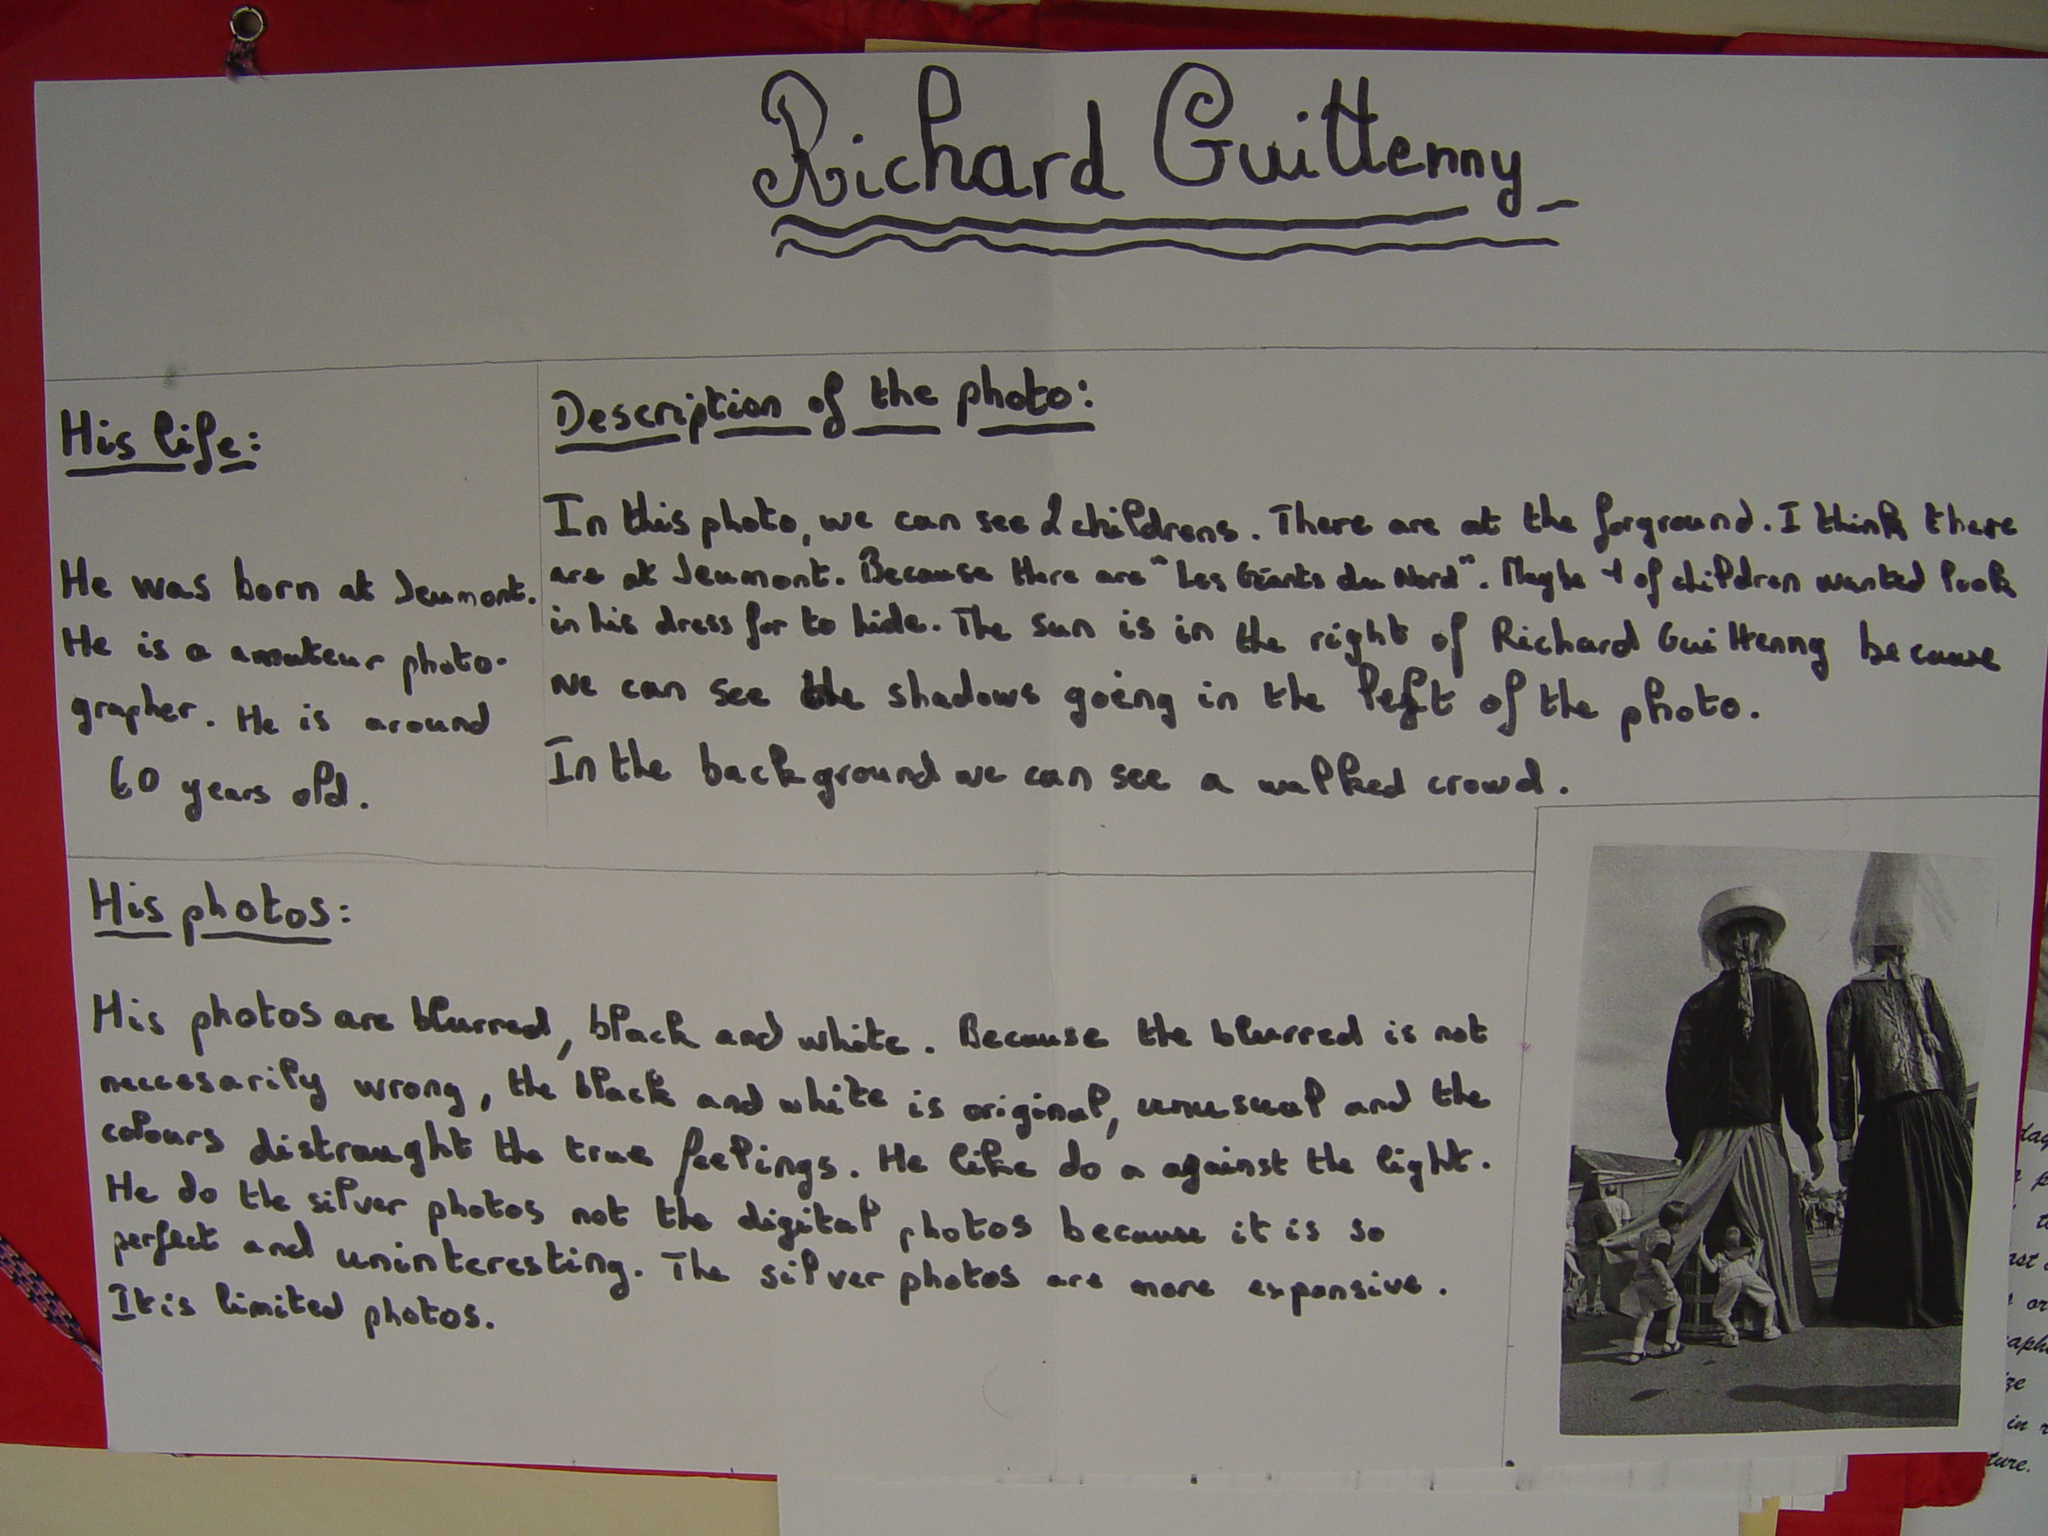 Richard Guittenny_
His life:
He was born at Jeumont.
He is a amateur photo-
grapher. He is around
60 years old.
Description of the photo:
In this photo, we can see 2 childrens. There are at the forground. I think there
are at Jeumont. Because there are "Les Géants du Nord". Maybe 1 of children wanted look
in his dress for to hide. The sun is in the right of Richard Guittenny because
we can see the shadows going in the left of the photo.
In the background we can see a walked crowd.
His photos:
His photos are blurred, black and white. Because the blurred is not
necessarily wrong, the black and white is original, unusual and the
colours distraught the true feelings. He like do a against the light.
He do the silver photos not the digital photos because it is so
perfect and uninteresting. The silver photos are more expansive.
It is limited photos.
in
ture.